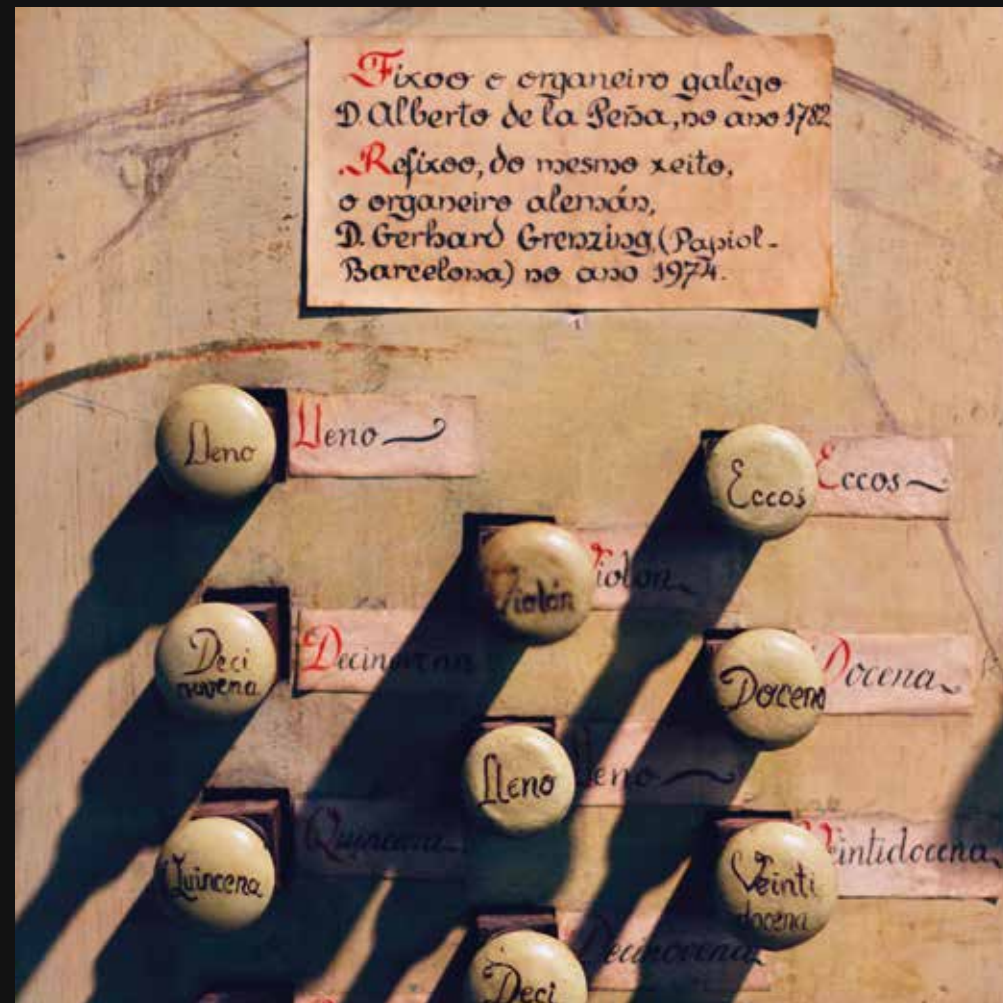 Fixoo o organeiro galego
D. Alberto de la Peña, no ano 1782
Refixoo, do mesmo xeito,
o organeiro alemán,
D. Gerhard Grenzing, (Papiol-
Barcelona) no ano 1974.
Lleno
Lleno
Eccos
Eccos
Violón
Violon
Deci
novena
Decinovena
Docena
Docena
Lleno
Lleno
Quincena
Quincena
Veinti
docena
Veintidocena
Deci
Decinovena